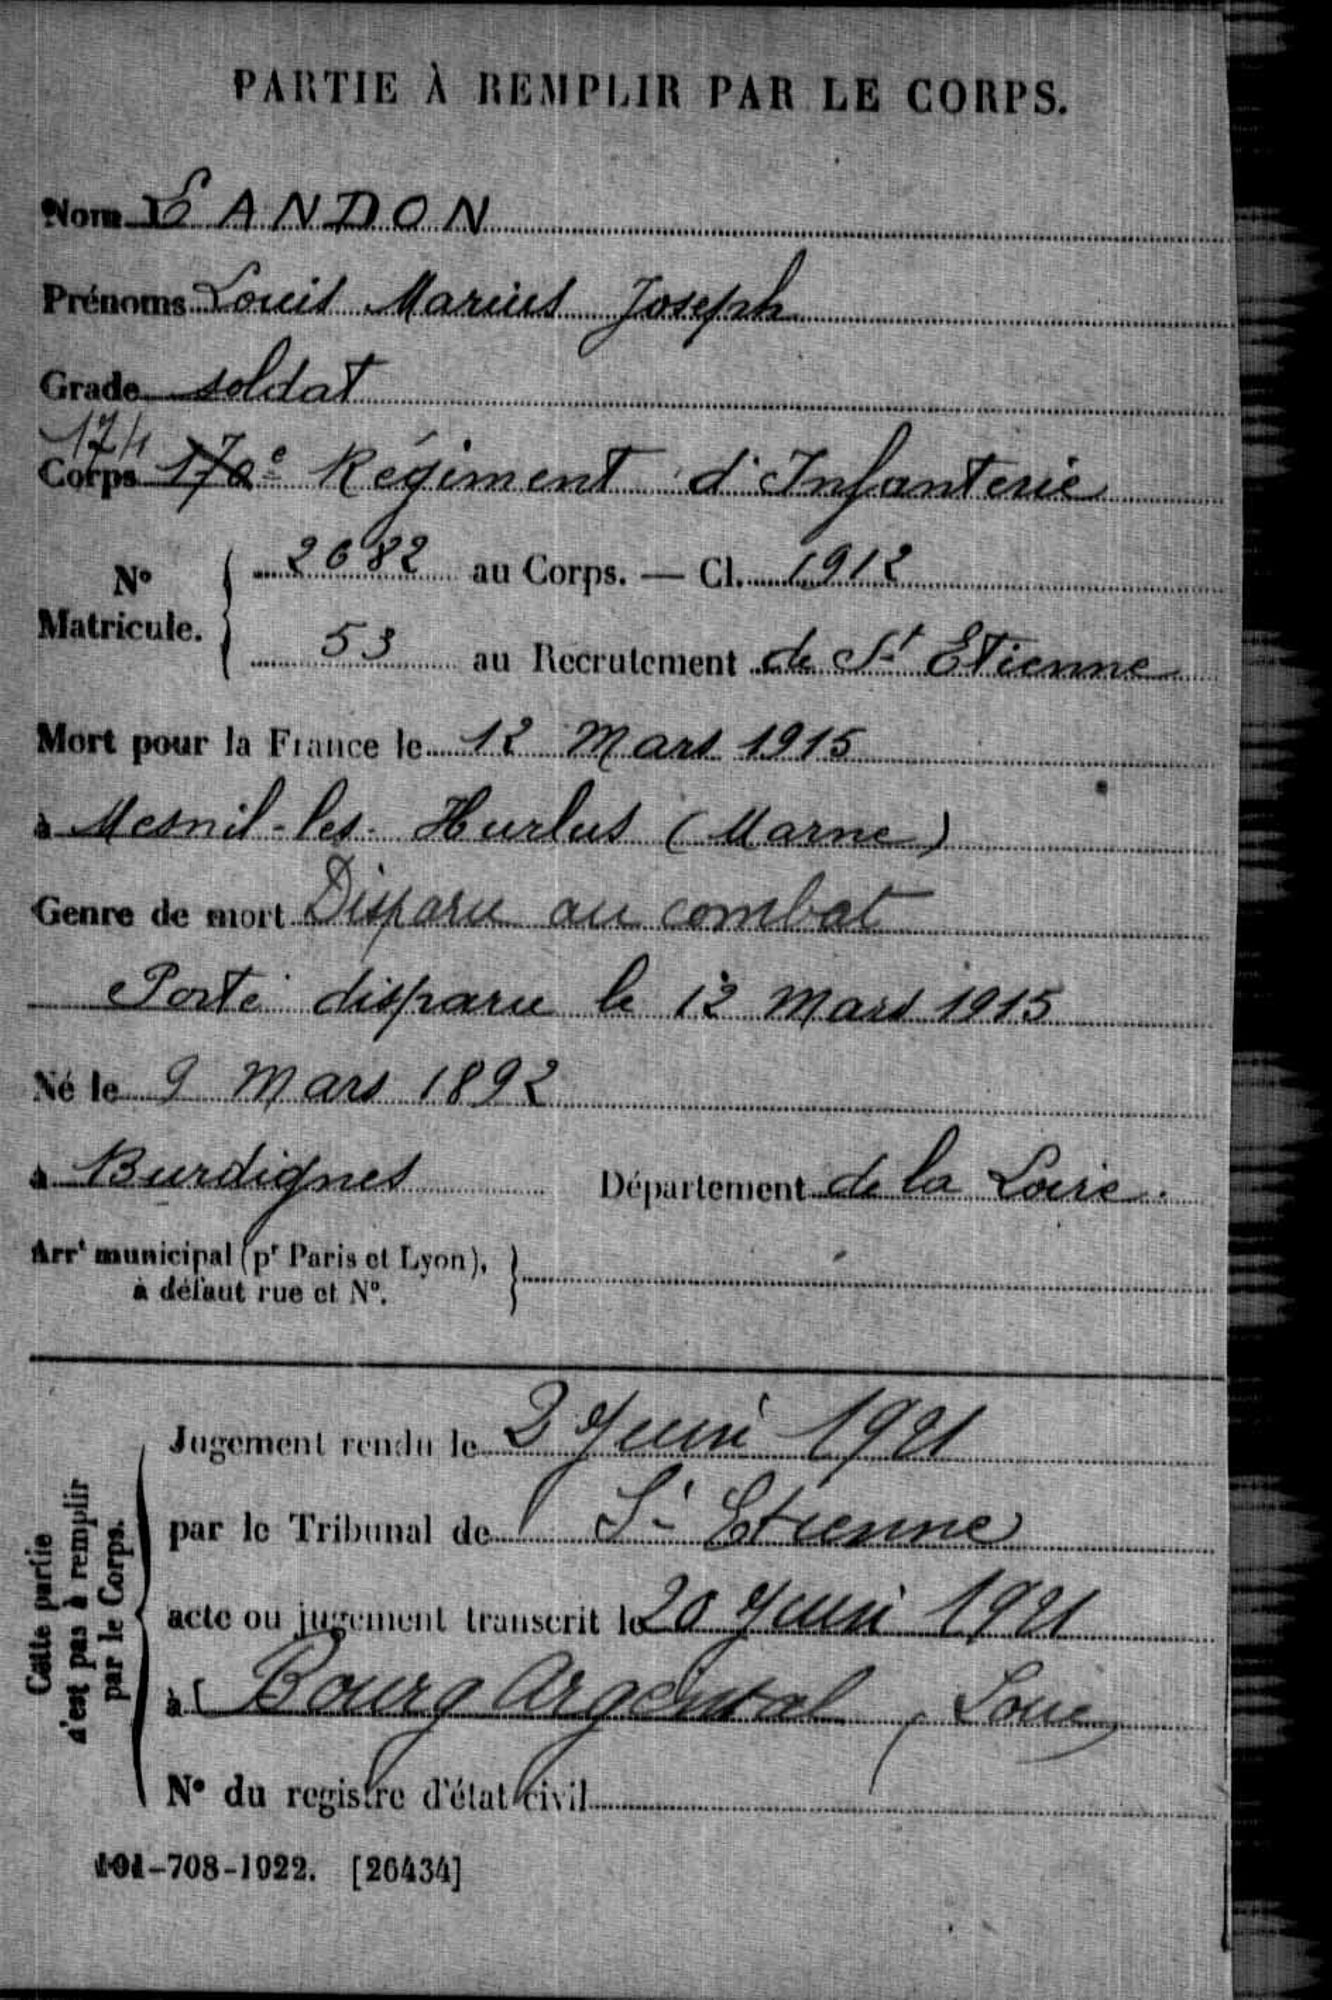 PARTIE À REMPLIR PAR LE CORPS.
Nom LANDON
Prénoms Louis Marius Joseph
Grade soldat
174
Corps 170e Régiment d'Infanterie
No Matricule. 2682 au Corps. — Cl. 1912
53 au Recrutement de St Etienne
Mort pour la France le 12 Mars 1915
à Mesnil-les-Hurlus (Marne)
Genre de mort Disparu au combat
Porté disparu le 12 Mars 1915
Né le 9 Mars 1892
à Burdignes Département de la Loire.
Arrt municipal (pr Paris et Lyon),
à défaut rue et No.
Cette partie
n'est pas à remplir
par le Corps.
Jugement rendu le 2 Juin 1921
par le Tribunal de St Etienne
acte ou jugement transcrit le 20 Juin 1921
à Bourg Argental, Loire
No du registre d'état civil
101-708-1922. [26434]